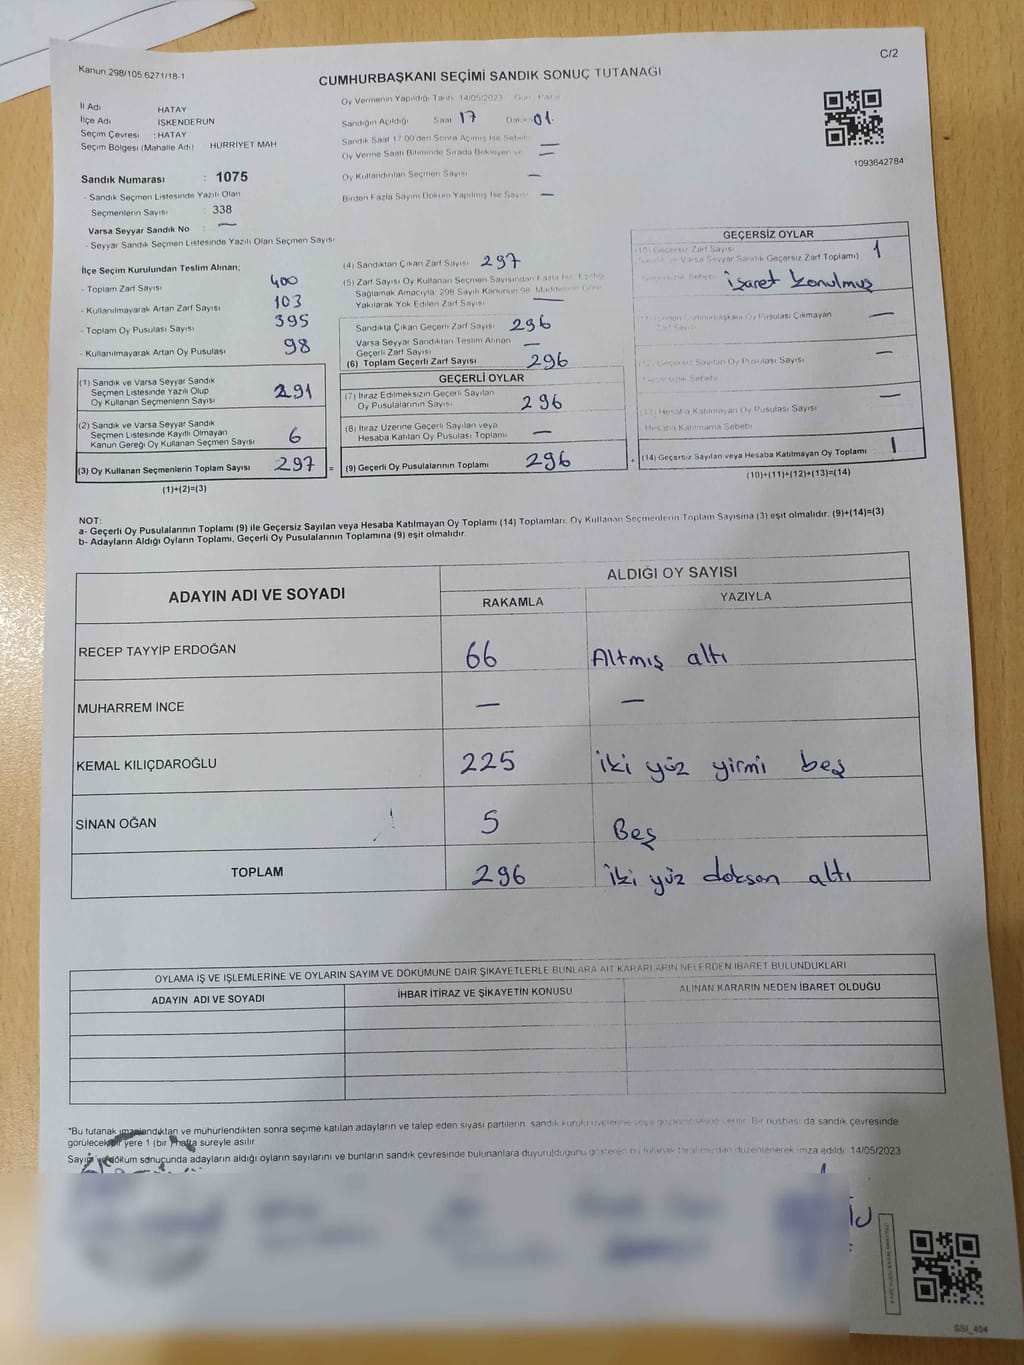 Kanun 298/105.6271/18-1
C/2
CUMHURBAŞKANI SEÇİMİ SANDIK SONUÇ TUTANAĞI
İl Adı HATAY
İlçe Adı İSKENDERUN
Seçim Çevresi : HATAY
Seçim Bölgesi (Mahalle Adı) HÜRRİYET MAH
Sandık Numarası : 1075
- Sandık Seçmen Listesinde Yazılı Olan
Seçmenlerin Sayısı : 338
Varsa Seyyar Sandık No : —
- Seyyar Sandık Seçmen Listesinde Yazılı Olan Seçmen Sayısı
Oy Vermenin Yapıldığı Tarih 14/05/2023 Gün Pazar
Sandığın Açıldığı Saat 17 Dakika 01.
Sandık Saat 17:00'den Sonra Açılmış İse Sebebi
Oy Verme Saati Bitiminde Sırada Bekleyen ve
Oy Kullandırılan Seçmen Sayısı —
Birden Fazla Sayım Döküm Yapılmış İse Sayısı —
1093642784
İlçe Seçim Kurulundan Teslim Alınan;
- Toplam Zarf Sayısı 400
- Kullanılmayarak Artan Zarf Sayısı 103
- Toplam Oy Pusulası Sayısı 395
- Kullanılmayarak Artan Oy Pusulası 98
(1) Sandık ve Varsa Seyyar Sandık
Seçmen Listesinde Yazılı Olup
Oy Kullanan Seçmenlerin Sayısı 291
(2) Sandık ve Varsa Seyyar Sandık
Seçmen Listesinde Kayıtlı Olmayan
Kanun Gereği Oy Kullanan Seçmen Sayısı 6
(3) Oy Kullanan Seçmenlerin Toplam Sayısı 297 =
(1)+(2)=(3)
(4) Sandıktan Çıkan Zarf Sayısı 297
(5) Zarf Sayısı Oy Kullanan Seçmen Sayısından Fazla İse Eşitliği
Sağlamak Amacıyla, 298 Sayılı Kanunun 98. Maddesine Göre
Yakılarak Yok Edilen Zarf Sayısı —
Sandıkta Çıkan Geçerli Zarf Sayısı 296
Varsa Seyyar Sandıktan Teslim Alınan
Geçerli Zarf Sayısı —
(6) Toplam Geçerli Zarf Sayısı 296
GEÇERLİ OYLAR
(7) İtiraz Edilmeksizin Geçerli Sayılan
Oy Pusulalarının Sayısı 296
(8) İtiraz Üzerine Geçerli Sayılan veya
Hesaba Katılan Oy Pusulası Toplamı —
(9) Geçerli Oy Pusulalarının Toplamı 296 +
GEÇERSİZ OYLAR
(10) Geçersiz Zarf Sayısı 1
(Sandık ve Varsa Seyyar Sandık Geçersiz Zarf Toplamı)
Geçersizlik Sebebi: işaret konulmuş
Cumhurbaşkanı Oy Pusulası Çıkmayan
Zarf Sayısı —
(12) Geçersiz Sayılan Oy Pusulası Sayısı —
Geçersizlik Sebebi
(13) Hesaba Katılmayan Oy Pusulası Sayısı —
Hesaba Katılmama Sebebi
(14) Geçersiz Sayılan veya Hesaba Katılmayan Oy Toplamı 1
(10)+(11)+(12)+(13)=(14)
NOT:
a- Geçerli Oy Pusulalarının Toplamı (9) ile Geçersiz Sayılan veya Hesaba Katılmayan Oy Toplamı (14) Toplamları, Oy Kullanan Seçmenlerin Toplam Sayısına (3) eşit olmalıdır. (9)+(14)=(3)
b- Adayların Aldığı Oyların Toplamı, Geçerli Oy Pusulalarının Toplamına (9) eşit olmalıdır.
ADAYIN ADI VE SOYADI ALDIĞI OY SAYISI
RAKAMLA YAZIYLA
RECEP TAYYİP ERDOĞAN 66 Altmış altı
MUHARREM İNCE — —
KEMAL KILIÇDAROĞLU 225 iki yüz yirmi beş
SİNAN OĞAN 5 Beş
TOPLAM 296 iki yüz doksan altı
OYLAMA İŞ VE İŞLEMLERİNE VE OYLARIN SAYIM VE DÖKÜMÜNE DAİR ŞİKAYETLERLE BUNLARA AİT KARARLARIN NELERDEN İBARET BULUNDUKLARI
ADAYIN ADI VE SOYADI İHBAR İTİRAZ VE ŞİKAYETİN KONUSU ALINAN KARARIN NEDEN İBARET OLDUĞU
*Bu tutanak imzalandıktan ve mühürlendikten sonra seçime katılan adayların ve talep eden siyasi partilerin sandık kurulu üyelerine veya gözlemcilerine verilir. Bir nüshası da sandık çevresinde
görülecek bir yere 1 (bir) hafta süreyle asılır
Sayım ve döküm sonucunda adayların aldığı oyların sayılarını ve bunların sandık çevresinde bulunanlara duyurulduğunu gösteren bu tutanak tarafımızdan düzenlenerek imza edildi. 14/05/2023
SSI_404